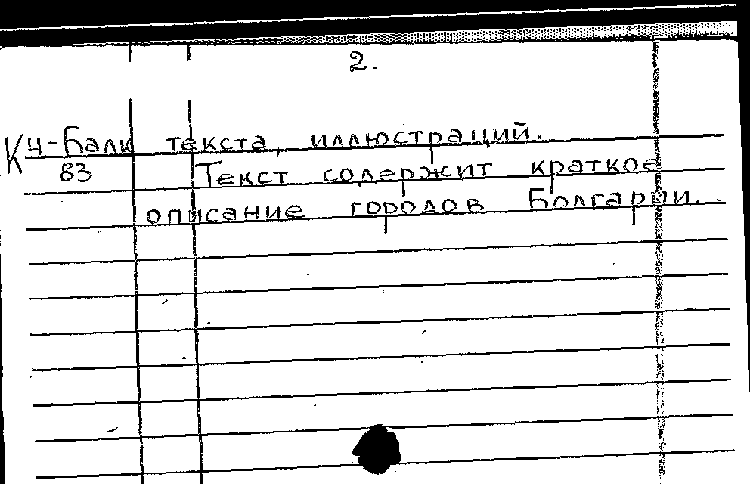 2.
Кч-Балк текста, иллюстраций.
83 Текст содержит краткое
описание городов Болгарии.